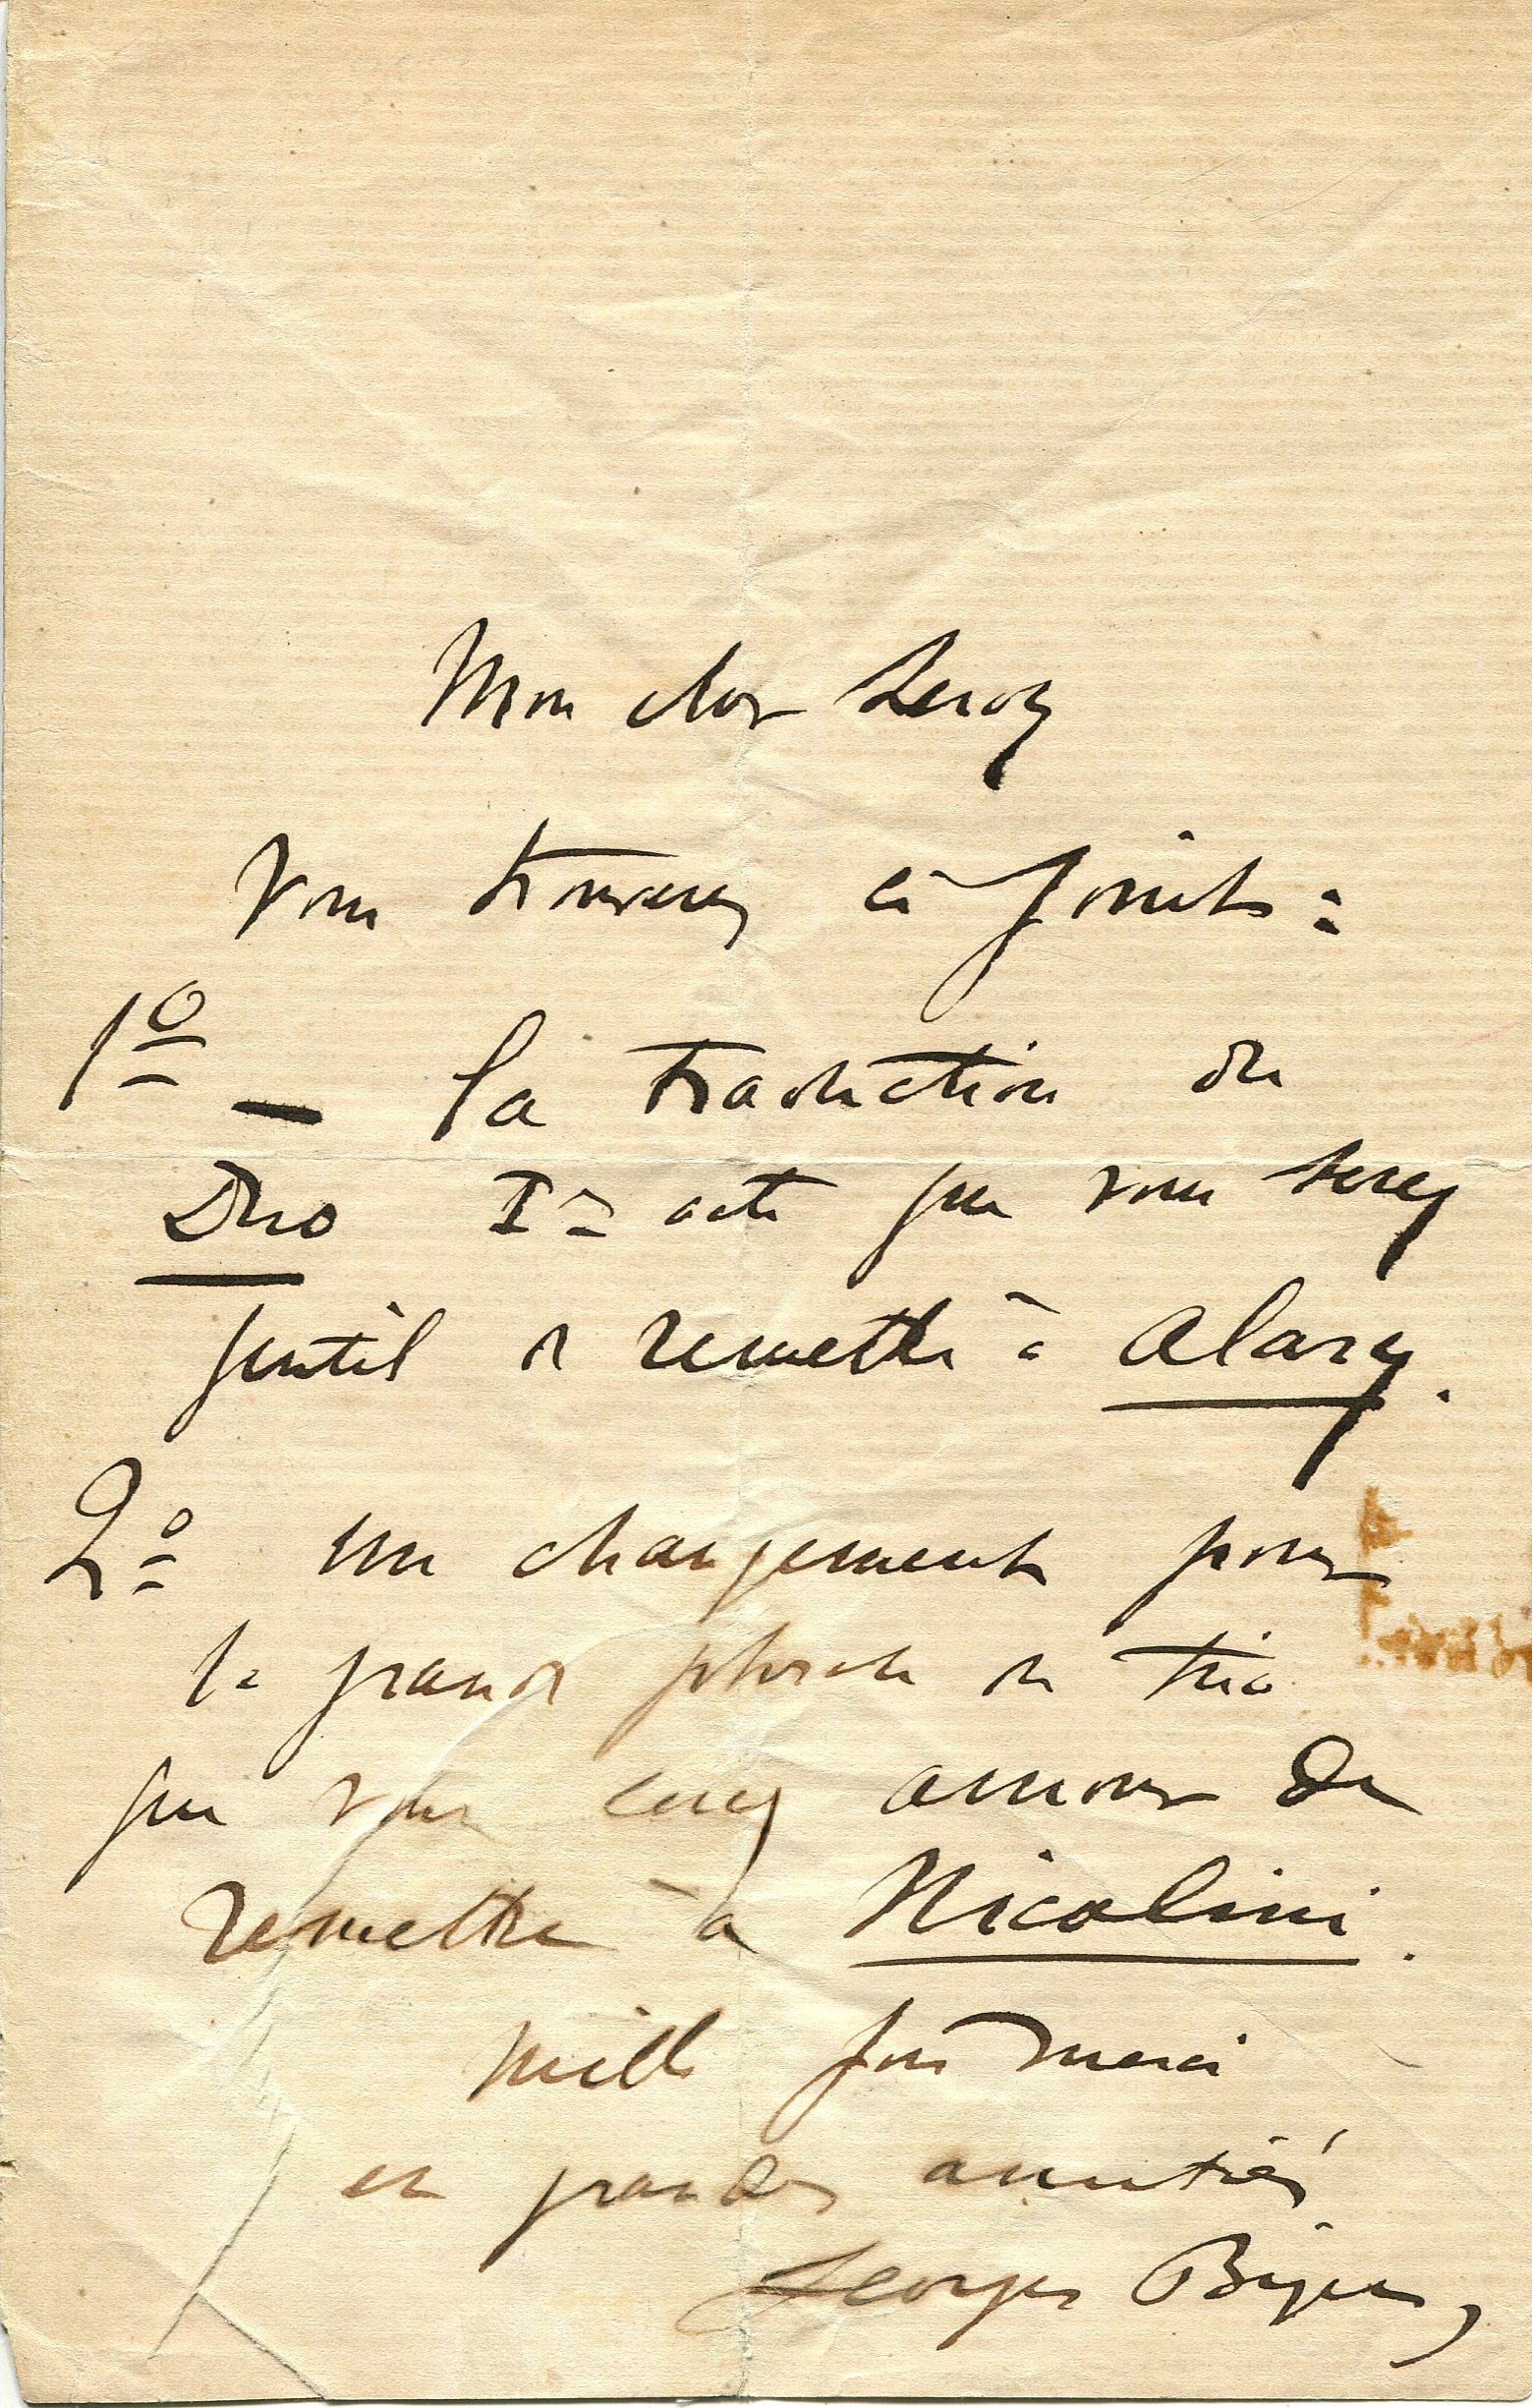 Mon cher Leroy
Vous trouverez ci-joints :
1º — la traduction du
Duo Ier acte que vous serez
gentil de remettre à Alary.
2º un changement pour
la grande phrase du trio
que vous serez amour de
remettre à Nicolini.
Mille fois merci
et grandes amitiés
Georges Bizet